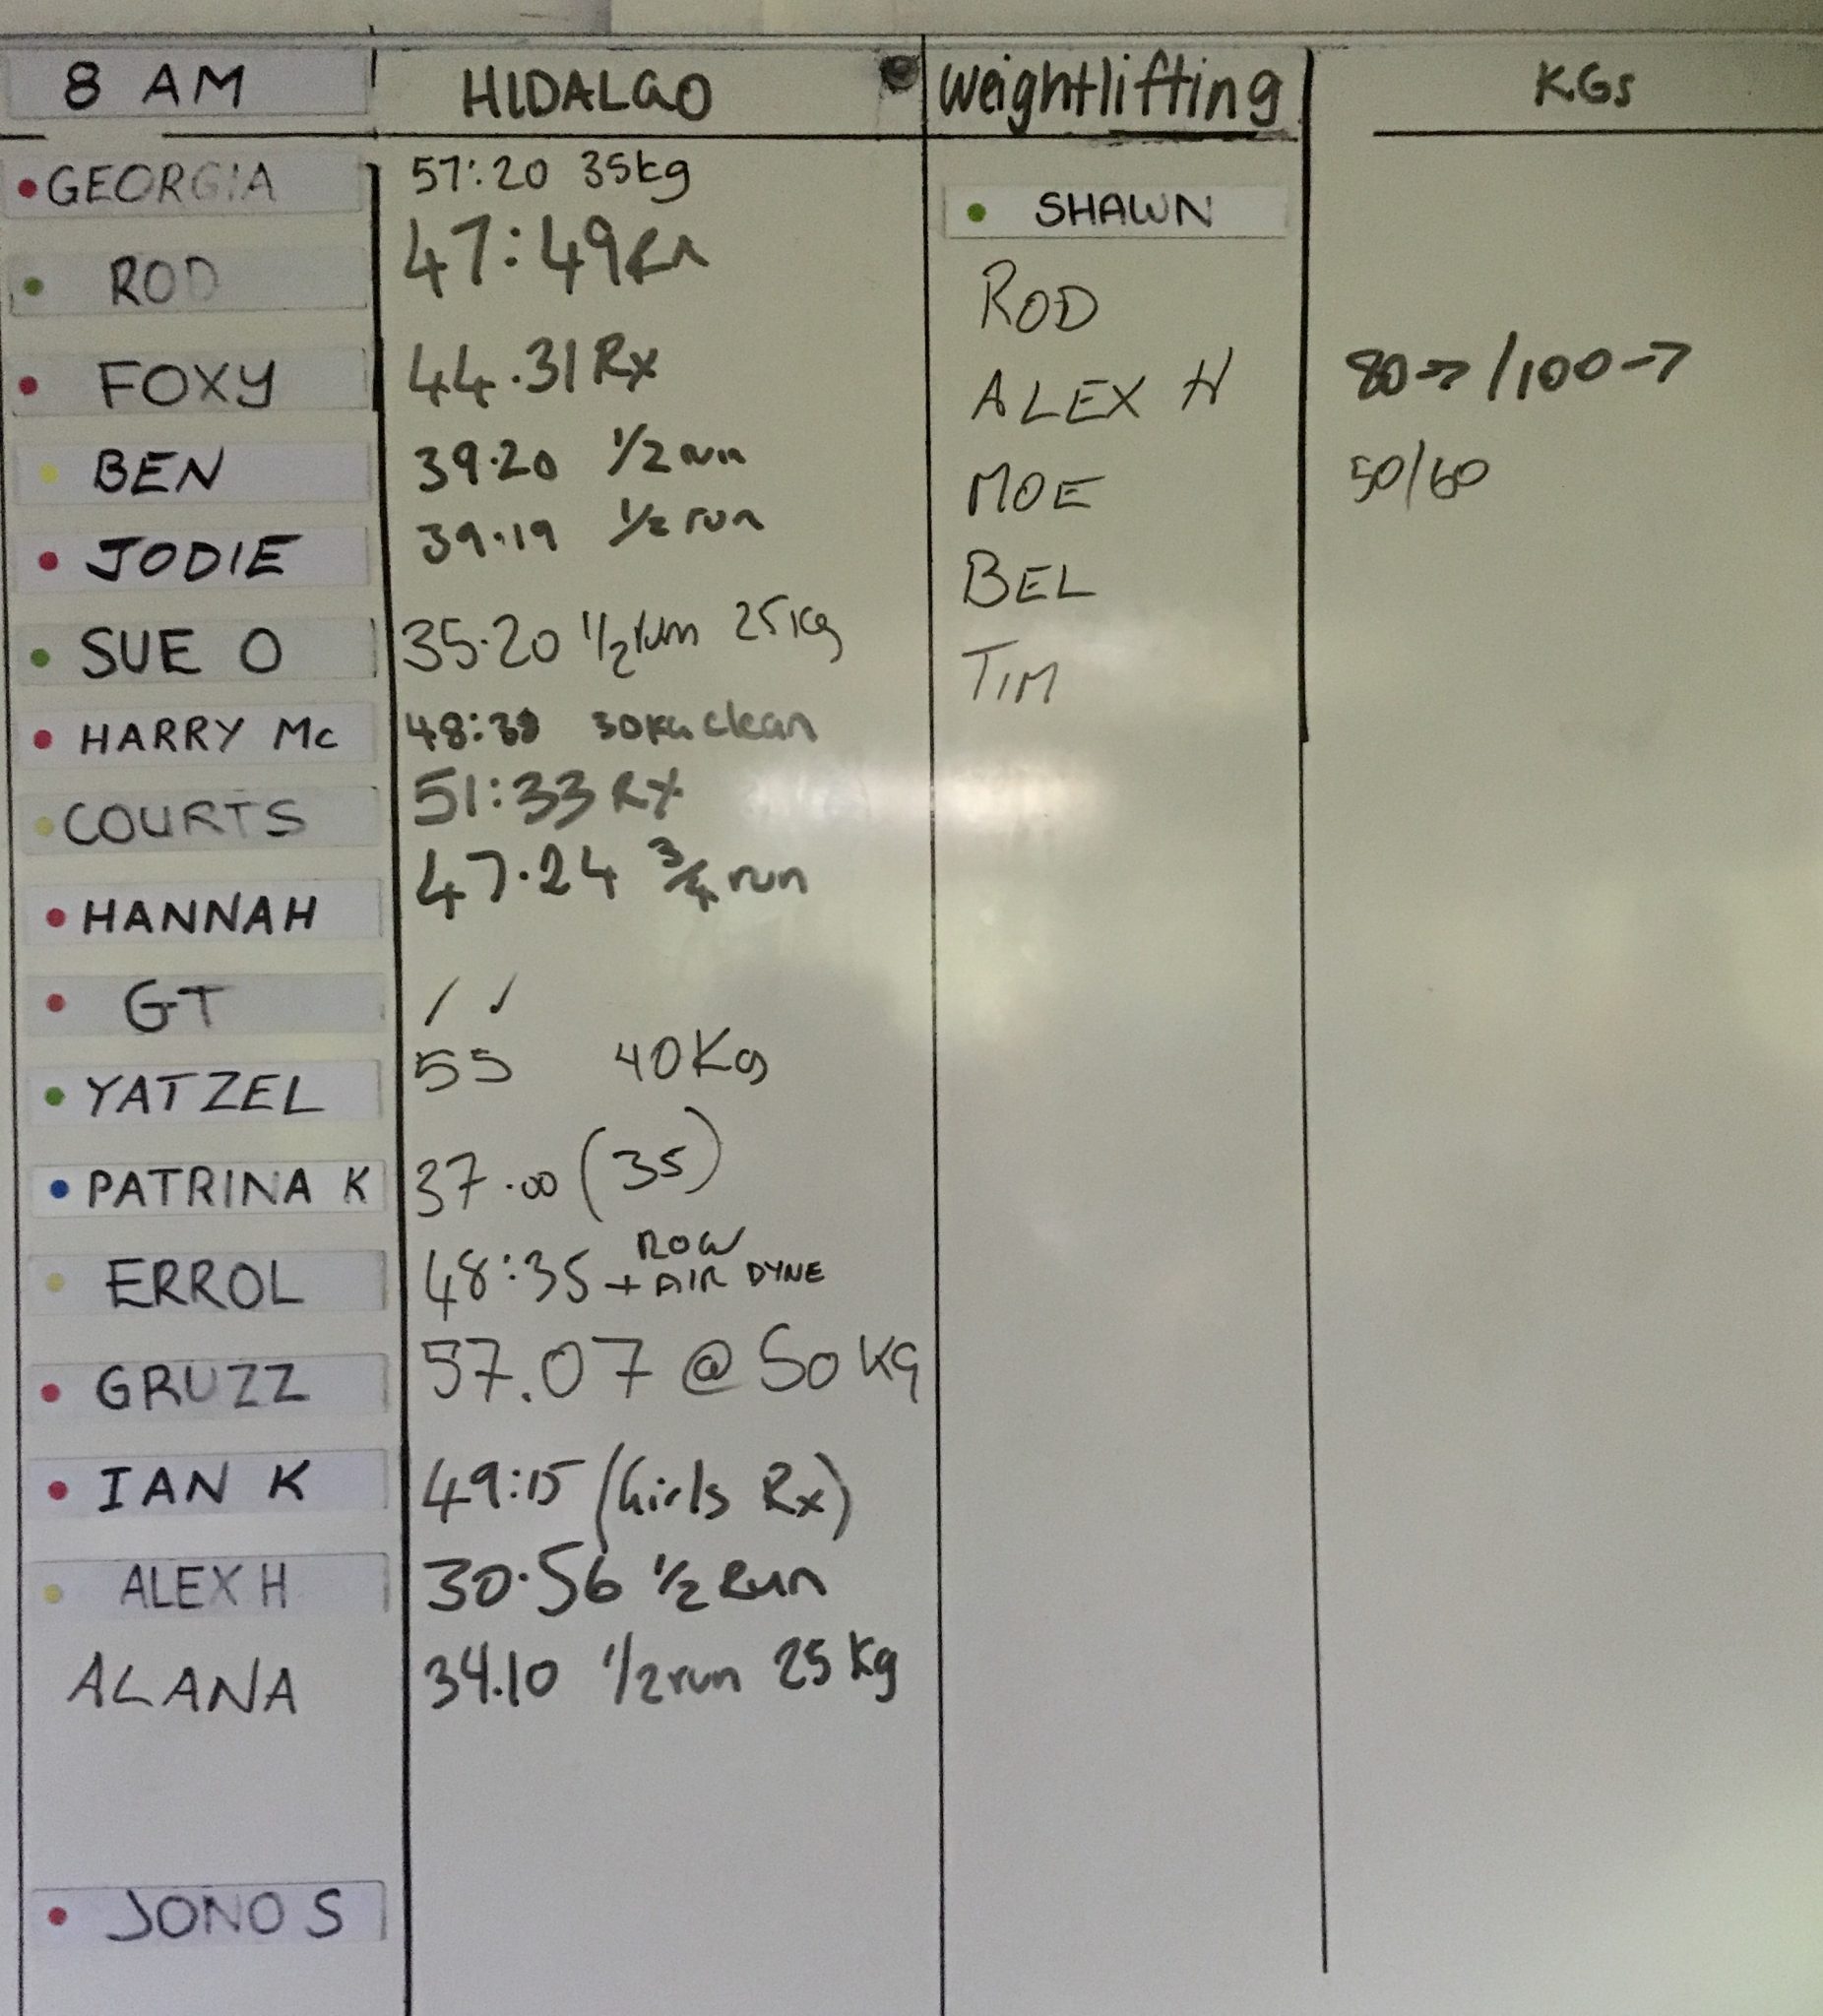 8 AM HIDALGO weightlifting KGs
GEORGIA 57:20 35kg
SHAWN
ROD 47:49 Rx
ROD
FOXY 44.31 Rx
ALEX H 80→/100→
BEN 39.20 1/2 run
MOE 50/60
JODIE 39.19 1/2 run
BEL
SUE O 35.20 1/2 run 25kg
TIM
HARRY Mc 30KG clean
COURTS 51:33 Rx
HANNAH 47.24 3/4 run
GT / ✓
YATZEL 55 40Kg
PATRINA K 37.00 (35)
ERROL 48:35 ROW
+ AIR DYNE
GRUZZ 57.07 @ 50 KG
IAN K 49:15 (Girls Rx)
ALEX H 30.56 1/2 Run
ALANA 34.10 1/2 run 25 Kg
JONO S